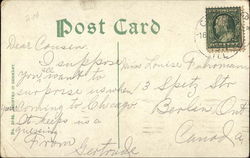 Post Card
Dear Cousin
I suppose
you want to
surprise us when
coming to Chicago
It keeps us a
guessing
From
Gertrude
Miss Louise
3 Speitz Str
Berlin, Ont
Canada